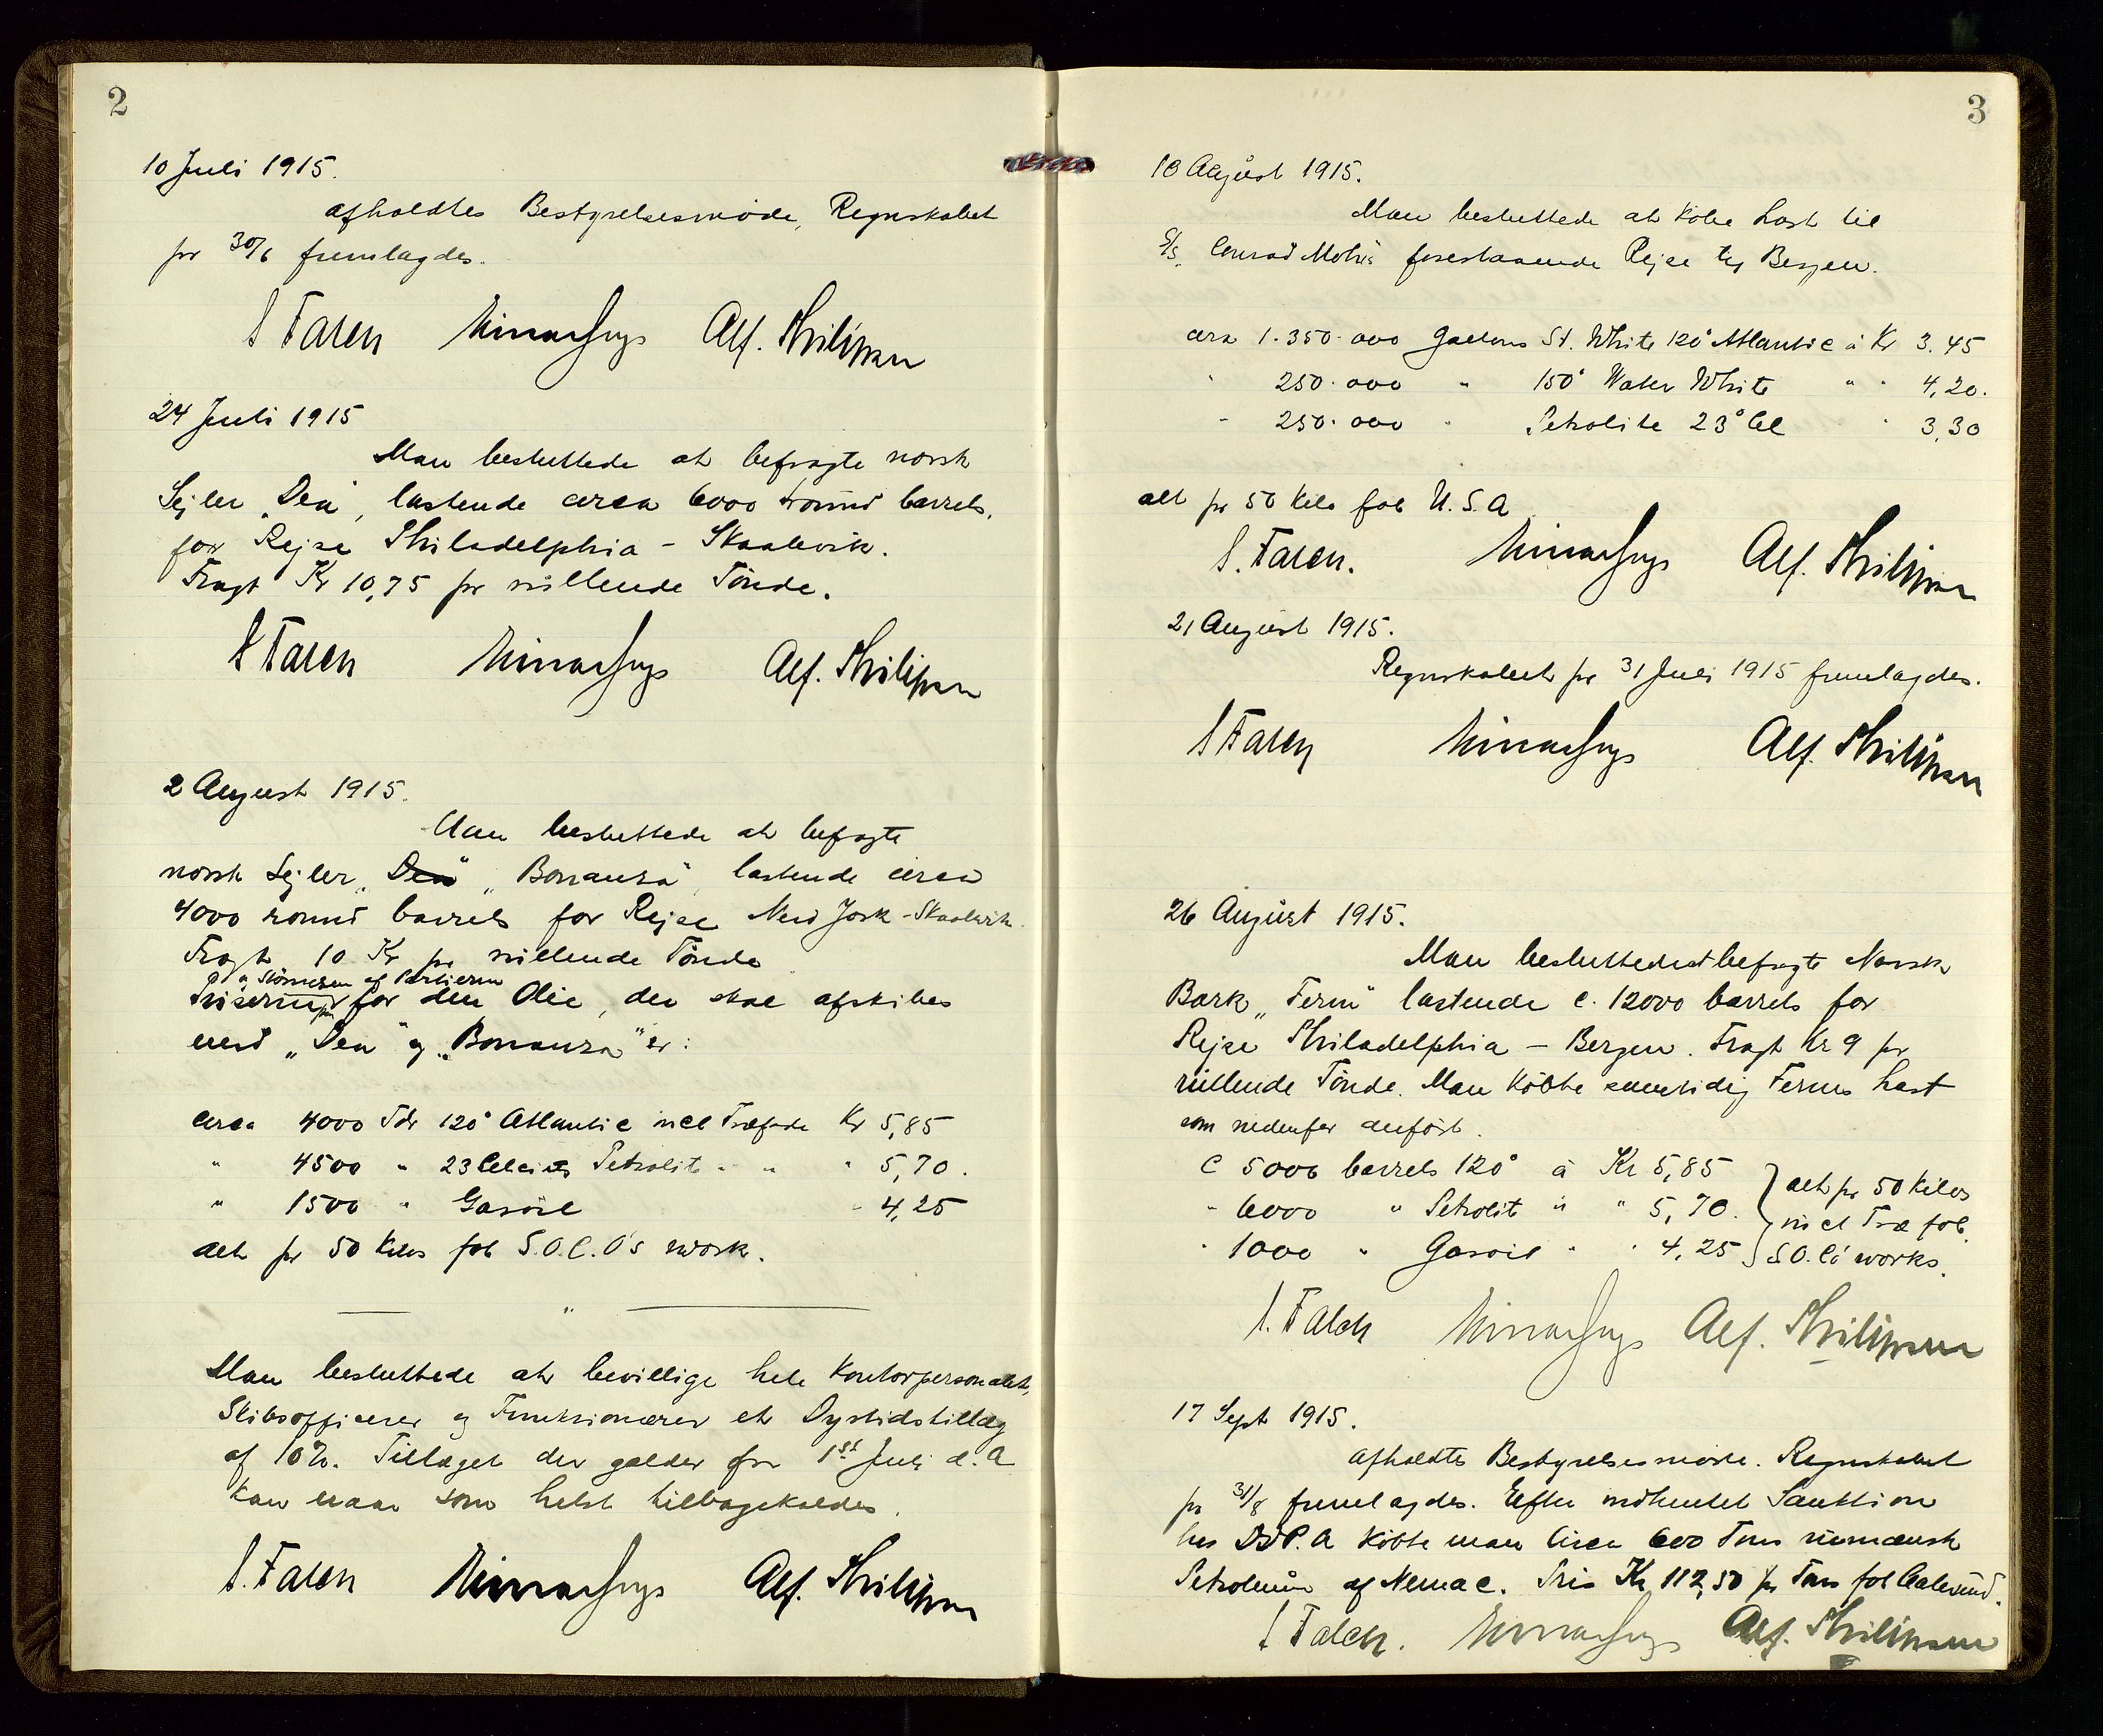 2
10 Juli 1915.
afholdtes Bestyrelsesmöde, Regnskabet
pr 30/6 fremlagdes.
Alf. Philipsen
24 Juli 1915
Man besluttede at befragte norsk
Sejler „Dea", lastende circa 6000 round barrels,
for Rejse Philadelphia - Skaalevik.
Fragt Kr 10,75 pr rullende Tönde.
Alf. Philipsen
2 August 1915.
Man besluttede at befragte
norsk Sejler „Dea" „Bonanza", lastende circa
4000 round barrels for Rejse New York - Skaalevik.
Fragt 10 Kr pr rullende Tönde
og Störrelsen af Partierne
Priserne for den Olie, der skal afskibes
med „Dea" og „Bonanza" er:
circa 4000 Tdr 120° Atlantic incl Træfade Kr 5,85
" 4500 " 23 Celcius Petrolit " " " 5,70.
" 1500 " Gasoil " 4,25
alt pr 50 Kilos fob S.O.C.O's work.
"
Man besluttede at bevillige hele Kontorpersonalet,
Skibsofficerer og Funktionærer et Dyrtidstillæg
af 10%. Tillæget der gælder fra 1st Juli d.A
kan naar som helst tilbagekaldes.
Alf. Philipsen
3
18 August 1915.
Man besluttede at köbe Last til
S/S. Conrad Mohrs forestaaende Rejse til Bergen.
cirka 1.350.000 Gallons St. White 120° Atlantic à Kr 3.45
" 250.000 " 150° Water White " " 4,20.
" 250.000 " Petrolite 23° Cel " 3,30
alt pr 50 Kilo fob U.S.A
Alf. Philipsen
21 August 1915.
Regnskabet pr 31 Juli 1915 fremlagdes.
Alf. Philipsen
26 August 1915.
Man besluttede at befragte Norsk
Bark „Ferm" lastende c. 12000 barrels for
Rejse Philadelphia - Bergen. Fragt Kr 9 pr
rullende Tönde. Man köbte samtidig Ferms Last
som nedenfor anfört.
C 5000 barrels 120° à Kr 5,85
" 6000 " Petrolit à " 5,70.
" 1000 " Gasoil " " 4,25
alt pr 50 Kilos
incl Træ fob.
S.O.Co works.
Alf. Philipsen
17 Sept 1915.
afholdtes Bestyrelsesmöde. Regnskabet
pr 31/8 fremlagdes. Efter indhentet Sanktion
hos D.d.P.A köbte man Circa 600 Tons rumænsk
Petroleum af Nemac. Pris Kr 112,50 pr Tons fob Aalesund.
Alf. Philipsen